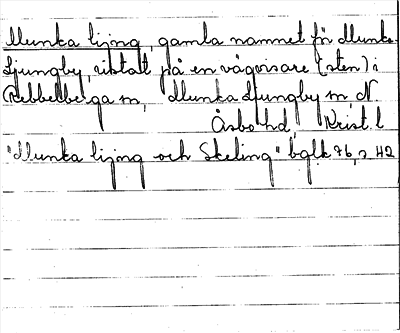 Munka lijng, gamla namnet för Munka-
Ljungby, ristatt på en vägvisare (sten) i
Rebbelberga sn, Munka Ljungby sn N.
Åsbo hd, Krist. l
"Munka lijng och Skeling" bglk 76, s 42